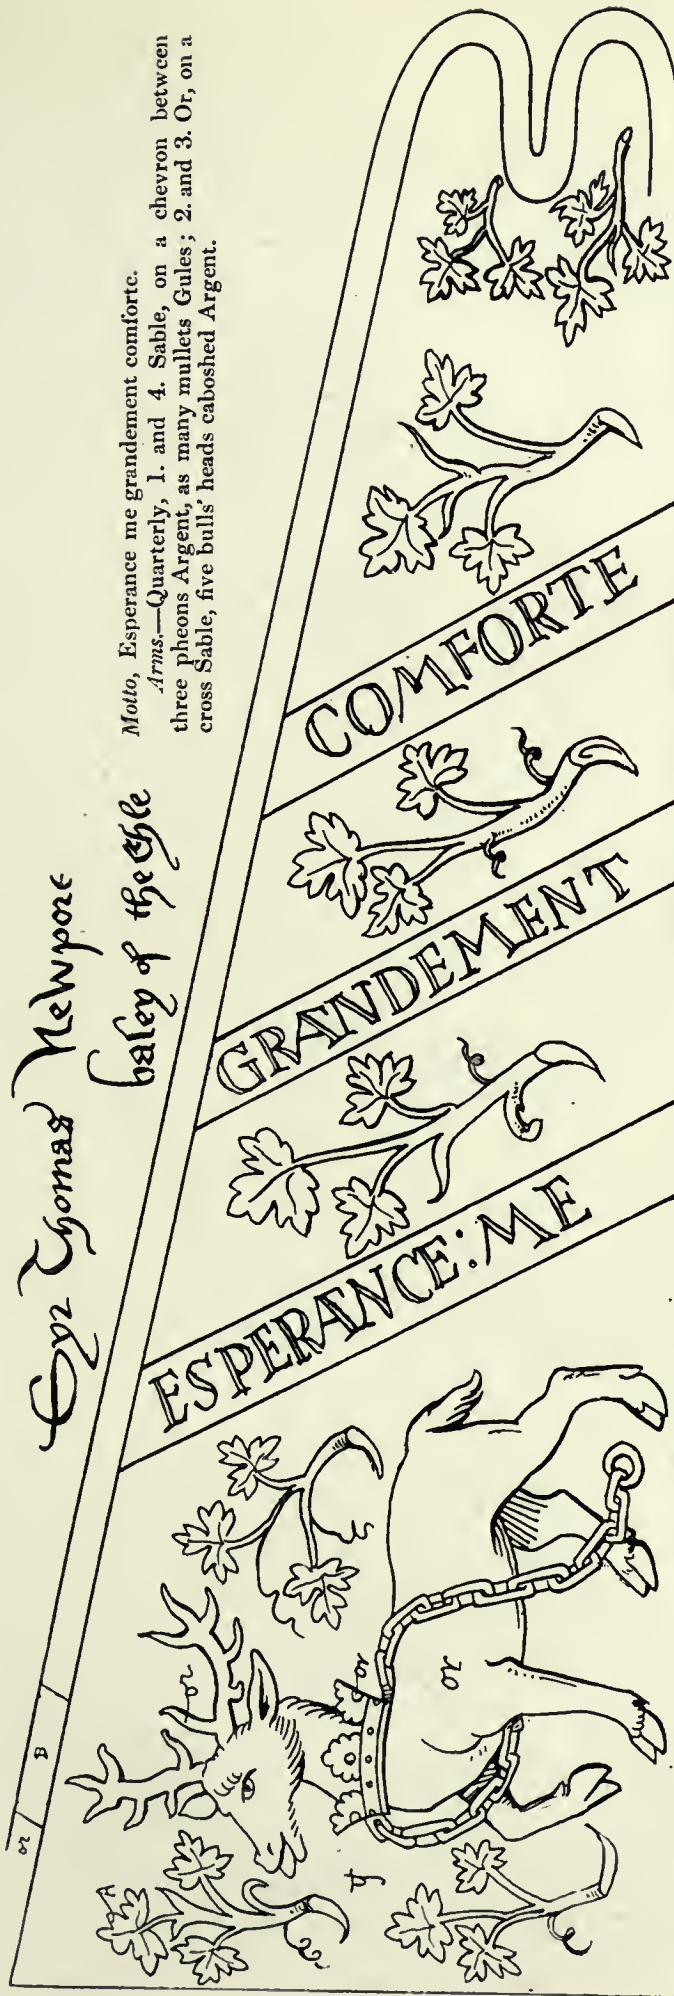 Syr Thomas Newport
baley of the Egle
Motto, Esperance me grandement comforte.
Arms.—Quarterly, 1. and 4. Sable, on a chevron between
three pheons Argent, as many mullets Gules; 2. and 3. Or, on a
cross Sable, five bulls' heads caboshed Argent.
or
B
ESPERANCE: ME
GRANDEMENT
COMFORTE
or
or
or